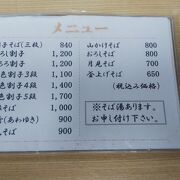 メニュー
子そば(三枚) 840
ろ割子 1,200
割子 1,200
色割子5段 1,100
色割子4段 1,400
色割子3段 1,100
(あわゆき) 900
そば 900
山かけそば 800
おろしそば 800
月見そば 700
釜上げそば 650
(税込み価格)
※そば湯あります。
お申し付け下さい。